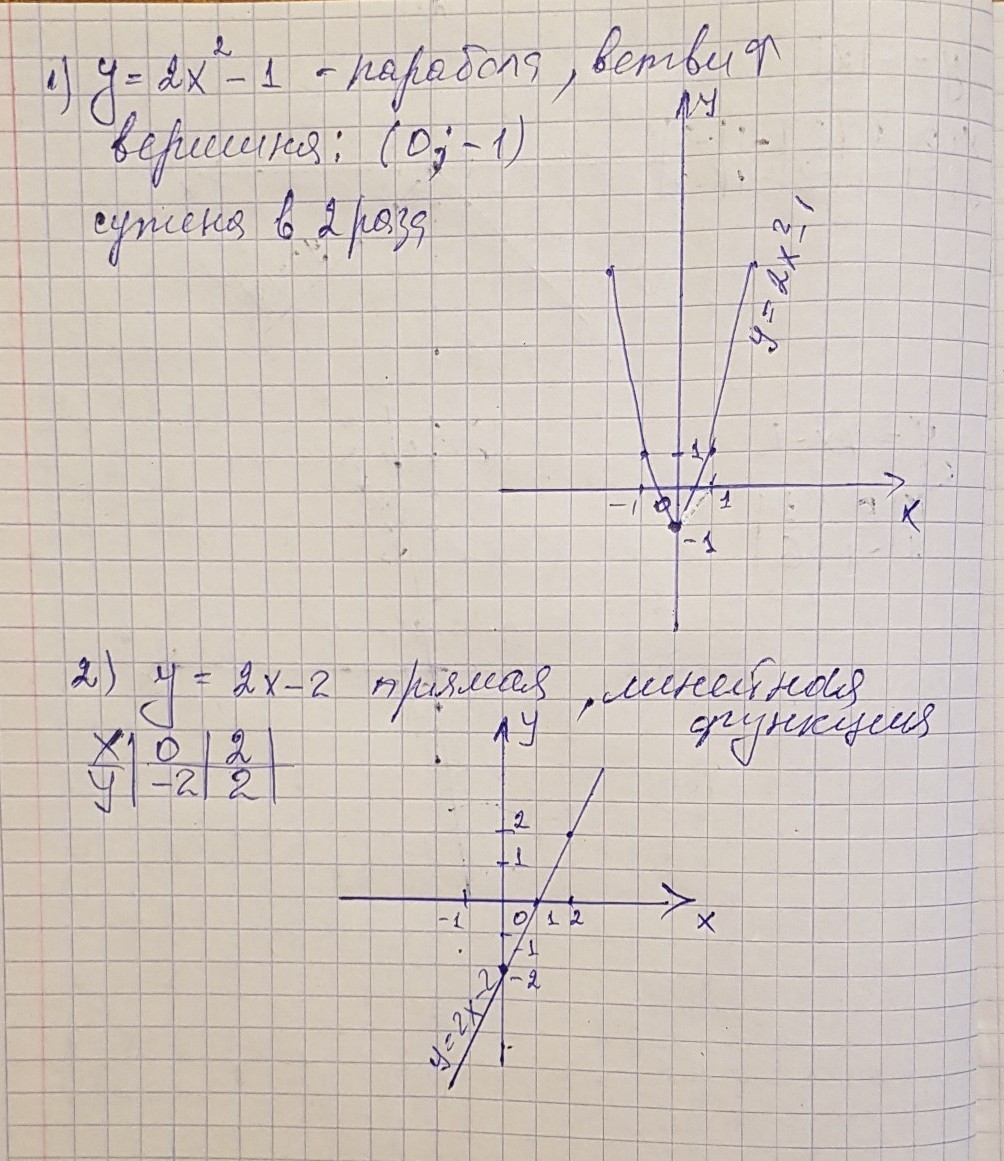 1) y = 2x² - 1 - парабола, ветви ↑
вершина: (0; -1)
сужена в 2 раза
y
y = 2x² - 1
1
-1 0 1
x
-1
2) y = 2x - 2 прямая, линейная
функция
x | 0 | 2 |
y | -2 | 2 |
y
2
1
-1 0 1 2
x
-1
-2
y = 2x - 2